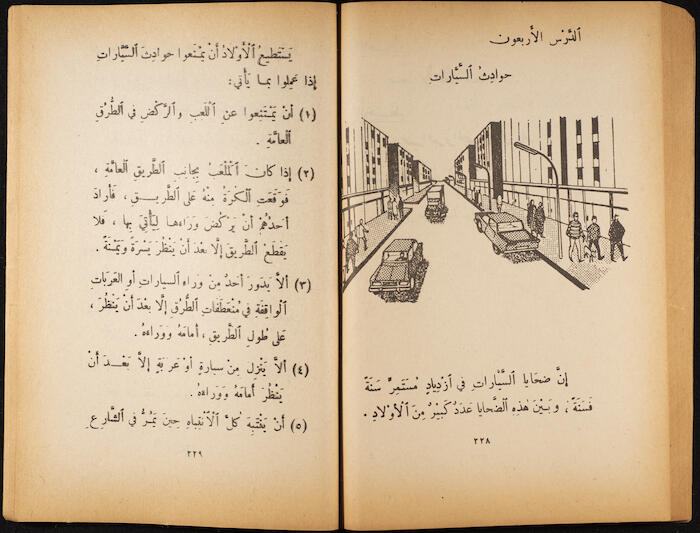 الدَّرْس الأَربعون
حوادِثُ السَّيَّاراتِ
إنَّ ضحايا السَّيَّاراتِ في اَزْدِيادٍ مُسْتَمِرٍّ سَنَةً
فَسَنَةً ، وبَيْنَ هٰذِهِ الضَّحايا عَدَدٌ كَبيرٌ مِنَ الأَوْلادِ .
٢٢٨
يَسْتَطيعُ الأَوْلادُ أَنْ يَمْنَعوا حوادِثَ السَّيَّاراتِ
إذا عَمِلوا بمـا يَأْتي :
(١) أنْ يَمْتَنِعوا عنِ اللَّعبِ والرَّكْضِ في الطُّرُقِ
العامَّةِ .
(٢) إذا كانَ المَلْعَبُ بِجانِبِ الطَّريقِ العامَّةِ ،
فَوَقَعَتِ الكُرَةُ مِنْهُ على الطَّريـــقِ ، فأَرادَ
أحَدُهُمْ أنْ يَرْكُضَ وَراءَهـا لِيَأْتِيَ بهـا ، فَلا
يَقْطَعِ الطَّريقَ إلَّا بعدَ أنْ يَنْظُرَ يَسْرَةً ويَمْنَةً .
(٣) ألَّا يَدُورَ أحدٌ مِنْ وراءِ السـياراتِ أوِ العَرَباتِ
الواقِفَةِ في مُنْعَطَفاتِ الطُّرُقِ إلَّا بعْدَ أنْ يَنْظُرَ ،
على طُولِ الطَّريقِ ، أمامَهُ ووَراءَهُ .
(٤) ألَّا يَنْزِلَ مِنْ سيارةٍ أوْ عَرَبَةٍ إلَّا بَعْــدَ أنْ
يَنْظُرَ أمامَهُ ووَراءَهُ .
(٥) أنْ يَنْتَبِهَ كُلَّ الاَنْتِباهِ حينَ يَمُرُّ في الشَّارِعِ
٢٢٩